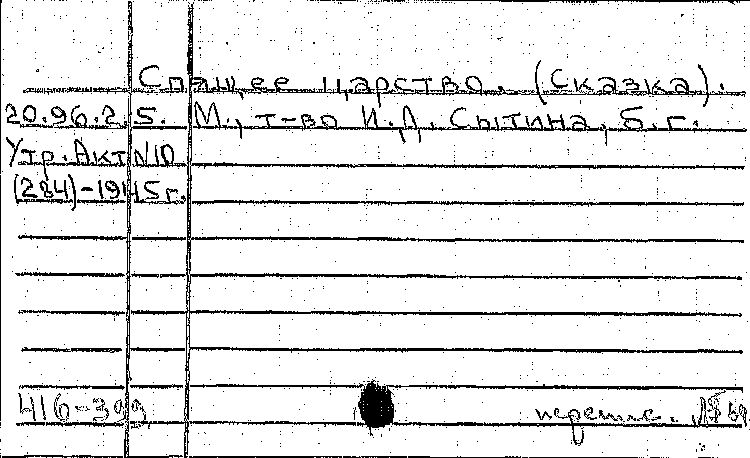 Спящее царство. (Сказка).
20.96.2.5. М., т-во И.Д. Сытина, б.г.
Утр. Акт N10
(284)-1945г.
416-399